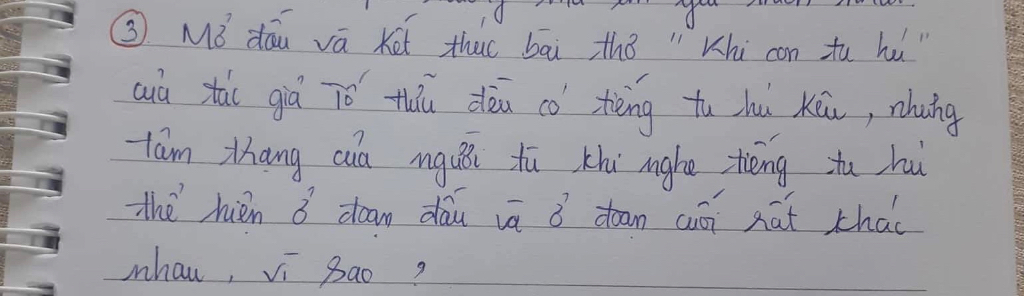 ③ Mở đầu và kết thúc bài thơ "Khi con tu hú"
của tác giả Tố Hữu đều có tiếng tu hú kêu, nhưng
tâm trạng của người tù khi nghe tiếng tu hú
thể hiện ở đoạn đầu và ở đoạn cuối rất khác
nhau, vì sao?